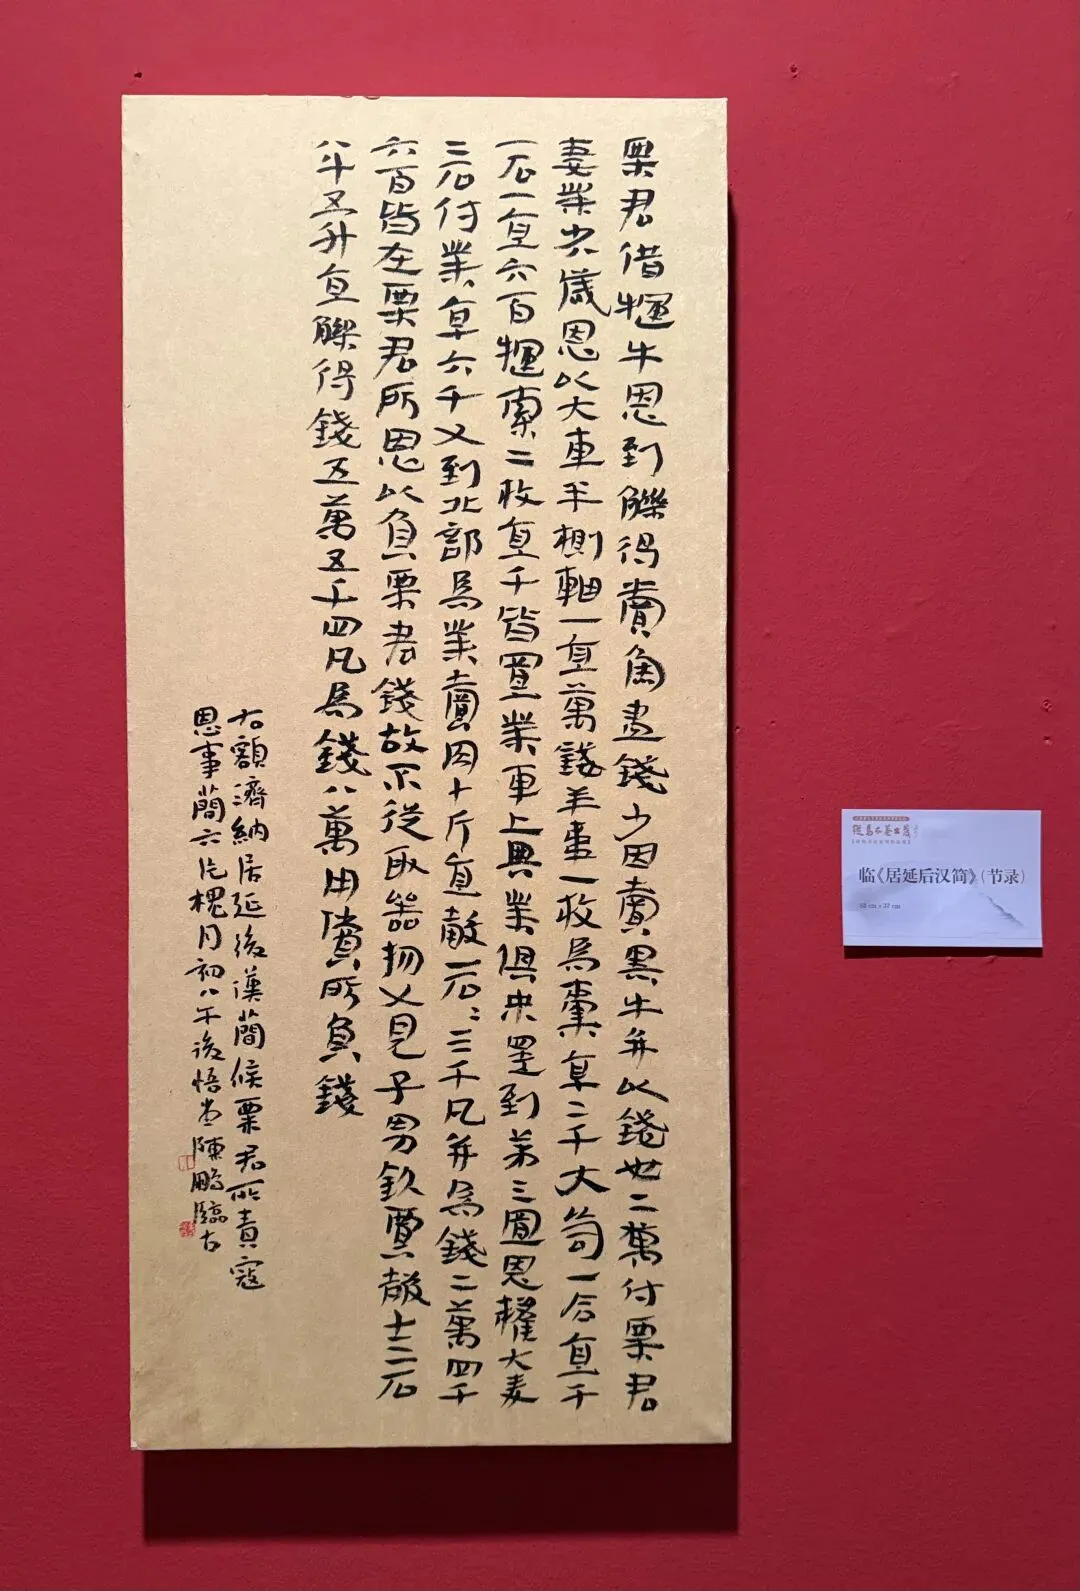 粟君借犅牛恩到觻得賣魚盡錢少因賣黑牛并以錢卅二萬付粟君
妻業少八歲恩以大車半軸一直萬錢羊韋一枚為橐直三千大笥一合直千
一石一直六百犅索二枚直千皆置業車上與業俱來還到第三置恩糴大麦
二石付業直六千又到北部為業賣肉十斤直穀一石石三千凡并為錢二萬四千
六百皆在粟君所恩以負粟君錢故不從取器物又恩子男欽賈穀十三石
八斗五升直觻得錢五萬五千四凡為錢八萬用償所負錢
右額濟納居延後漢簡候粟君所責寇
恩事簡六片槐月初八午後悟堂陳鵬臨古
临《居延后汉简》(节录)
68 cm × 37 cm